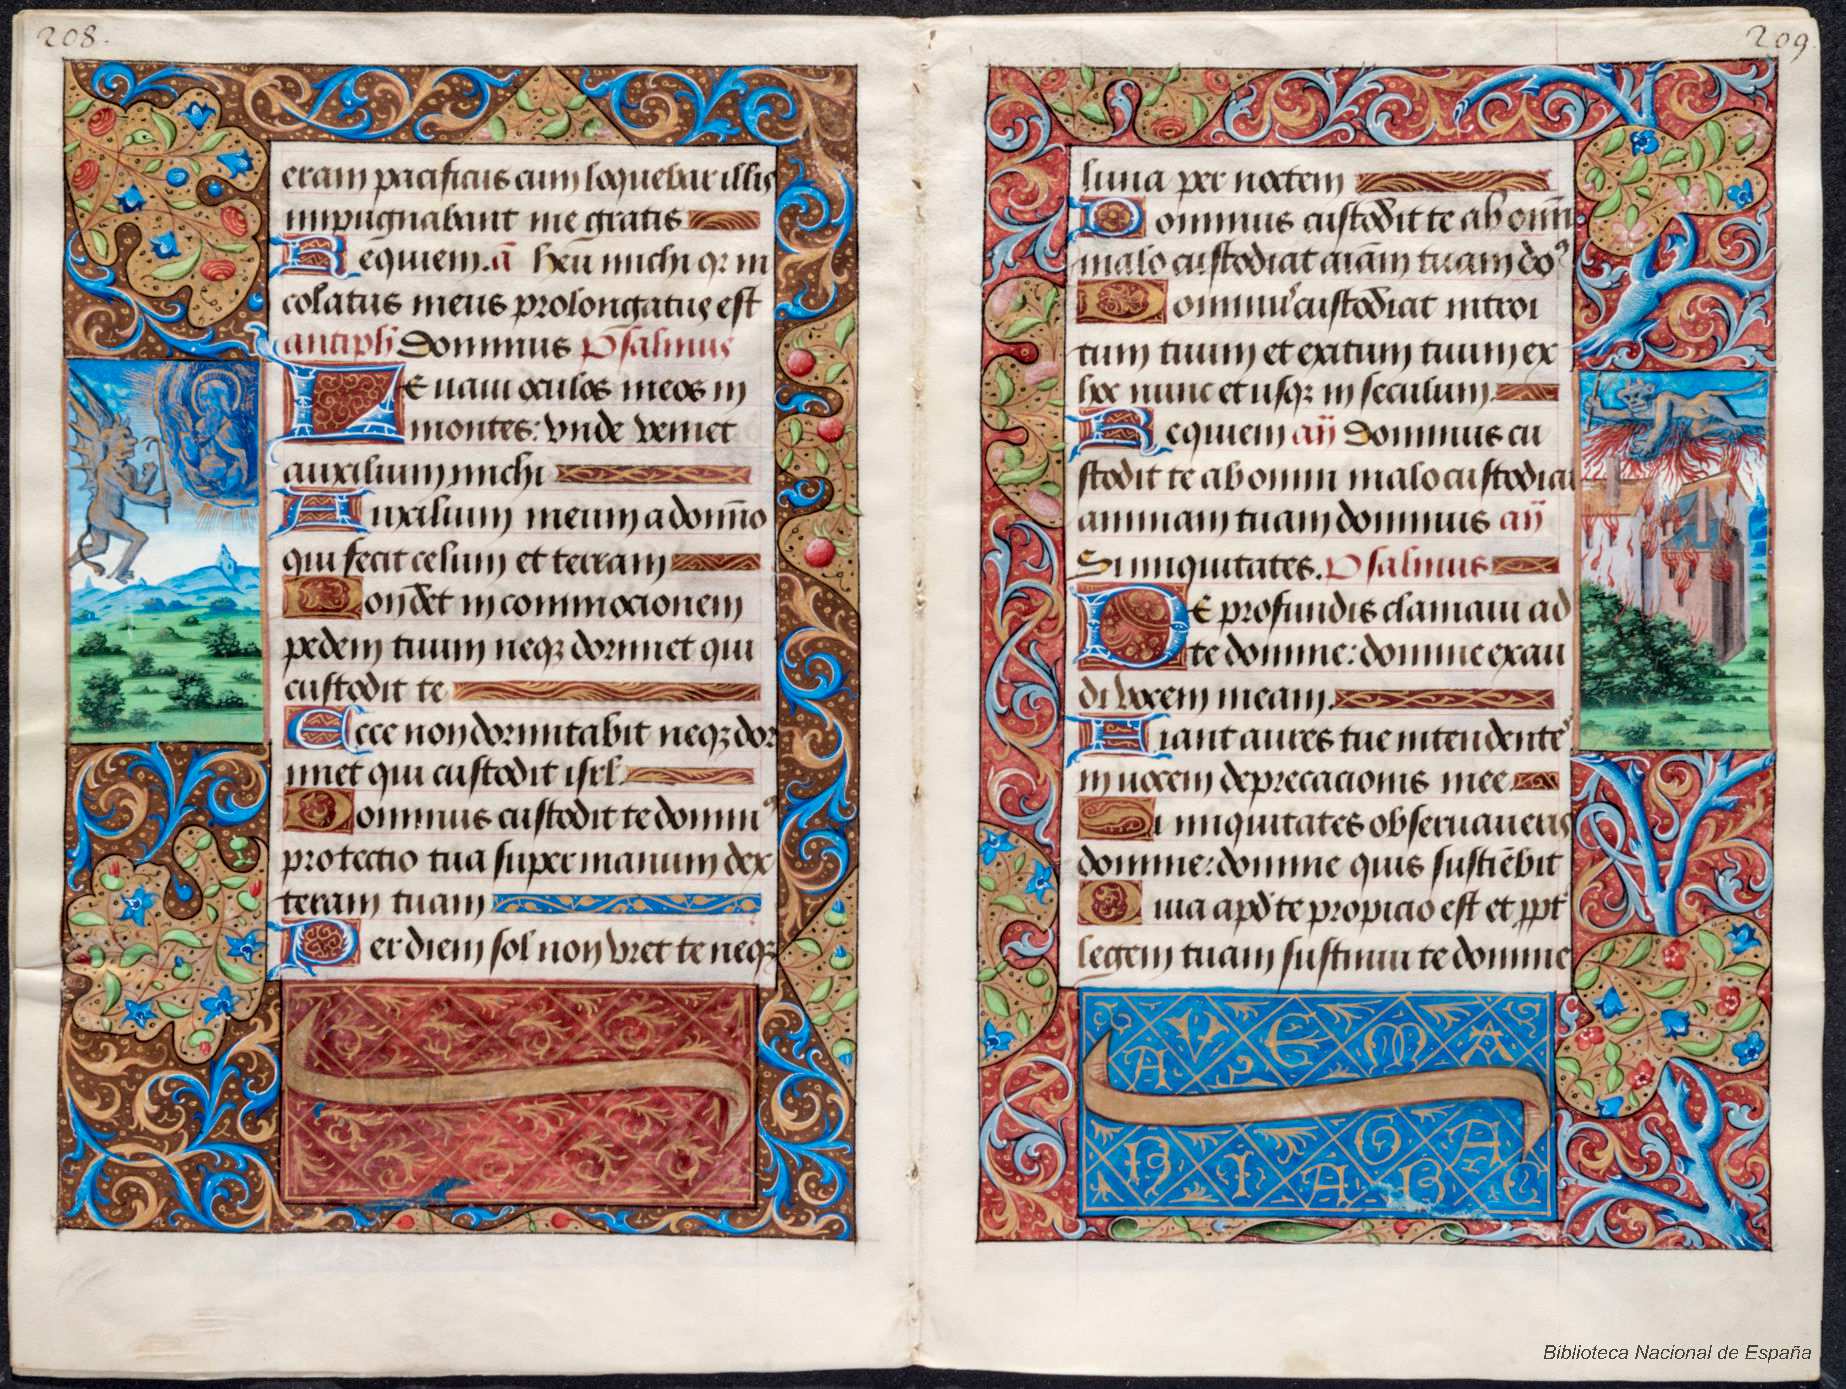 208.
eram pacificus cum loquebar illis
impugnabant me gratis
Requiem. a̅ heu̅ michi qꝛ in
colatus meus prolongatus est
antiph̅ Dominus Psalmus
LEuaui oculos meos in
montes: vnde veniet
auxilium michi
Auxilium meum a domi̅o
qui fecit celum et terram
Non det in commocionem
pedem tuum neqꝫ dormiet qui
custodit te
Ecce non dormitabit neqꝫ dor
miet qui custodit isrl̅
Dominus custodit te domin᷒
protectio tua super manum dex
teram tuam
Per diem sol non vret te neqꝫ
209.
luna per noctem
Dominus custodit te ab omi̅
malo custodiat ai̅am tuam do᷒
Dominus custodiat introi
tum tuum et exitum tuum ex
hoc nunc et usqꝫ in seculum
Requiem an̅ Dominus cu
stodit te ab omni malo custodiat
animam tuam dominus an̅
Si iniquitates. Psalmus
DE profundis clamaui ad
te domine: domine exau
di vocem meam.
Fiant aures tue intendente᷒
in vocem deprecacionis mee
Si iniquitates obseruaueris
domine: domine quis sustie̅bit
Quia apd̅ te propicio est et ꝓpt᷒
legem tuam sustinui te domine
AVE MA
RIA GRA
C
Biblioteca Nacional de España